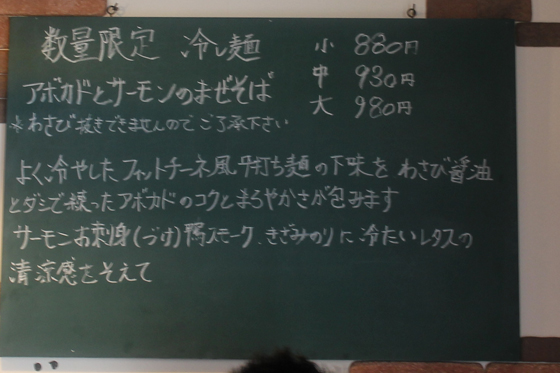 数量限定 冷し麺 小 880円
中 930円
アボカドとサーモンのまぜそば 大 980円
※わさび抜きできませんのでご了承下さい
よく冷やしたフィットチーネ風平打ち麺の下味をわさび醤油
とダシで練ったアボカドのコクとまろやかさが包みます
サーモンお刺身(づけ)鴨スモーク、きざみのりに冷たいレタスの
清涼感をそえて